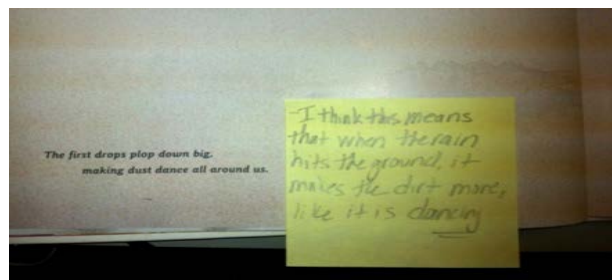 The first drops plop down big,
making dust dance all around us.
I think this means
that when the rain
hits the ground, it
makes the dirt move,
like it is dancing